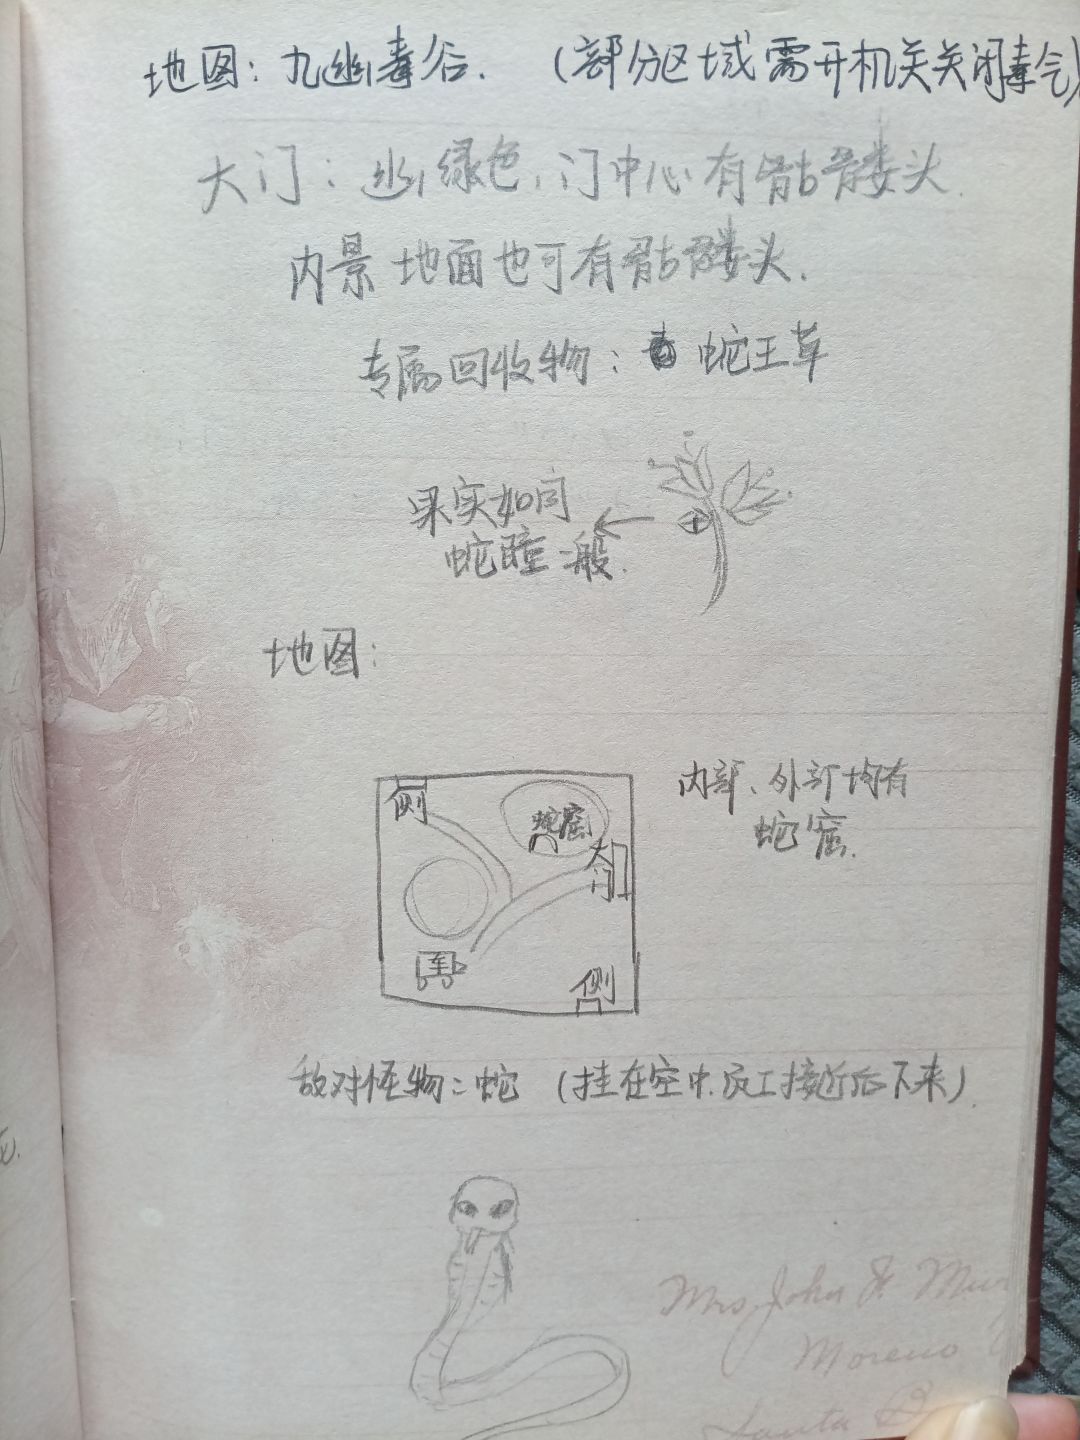 地图：九幽毒谷.（部分区域需开机关关闭毒气）
大门：幽绿色，门中心有骷髅头.
内景地面也可有骷髅头.
专属回收物：蛇王草
果实如同
蛇瞳一般.
地图：
侧
蛇窟
大门
车
侧
内部、外部均有
蛇窟.
敌对怪物：蛇（挂在空中.员工接近后下来）.
Mrs John
Moreno